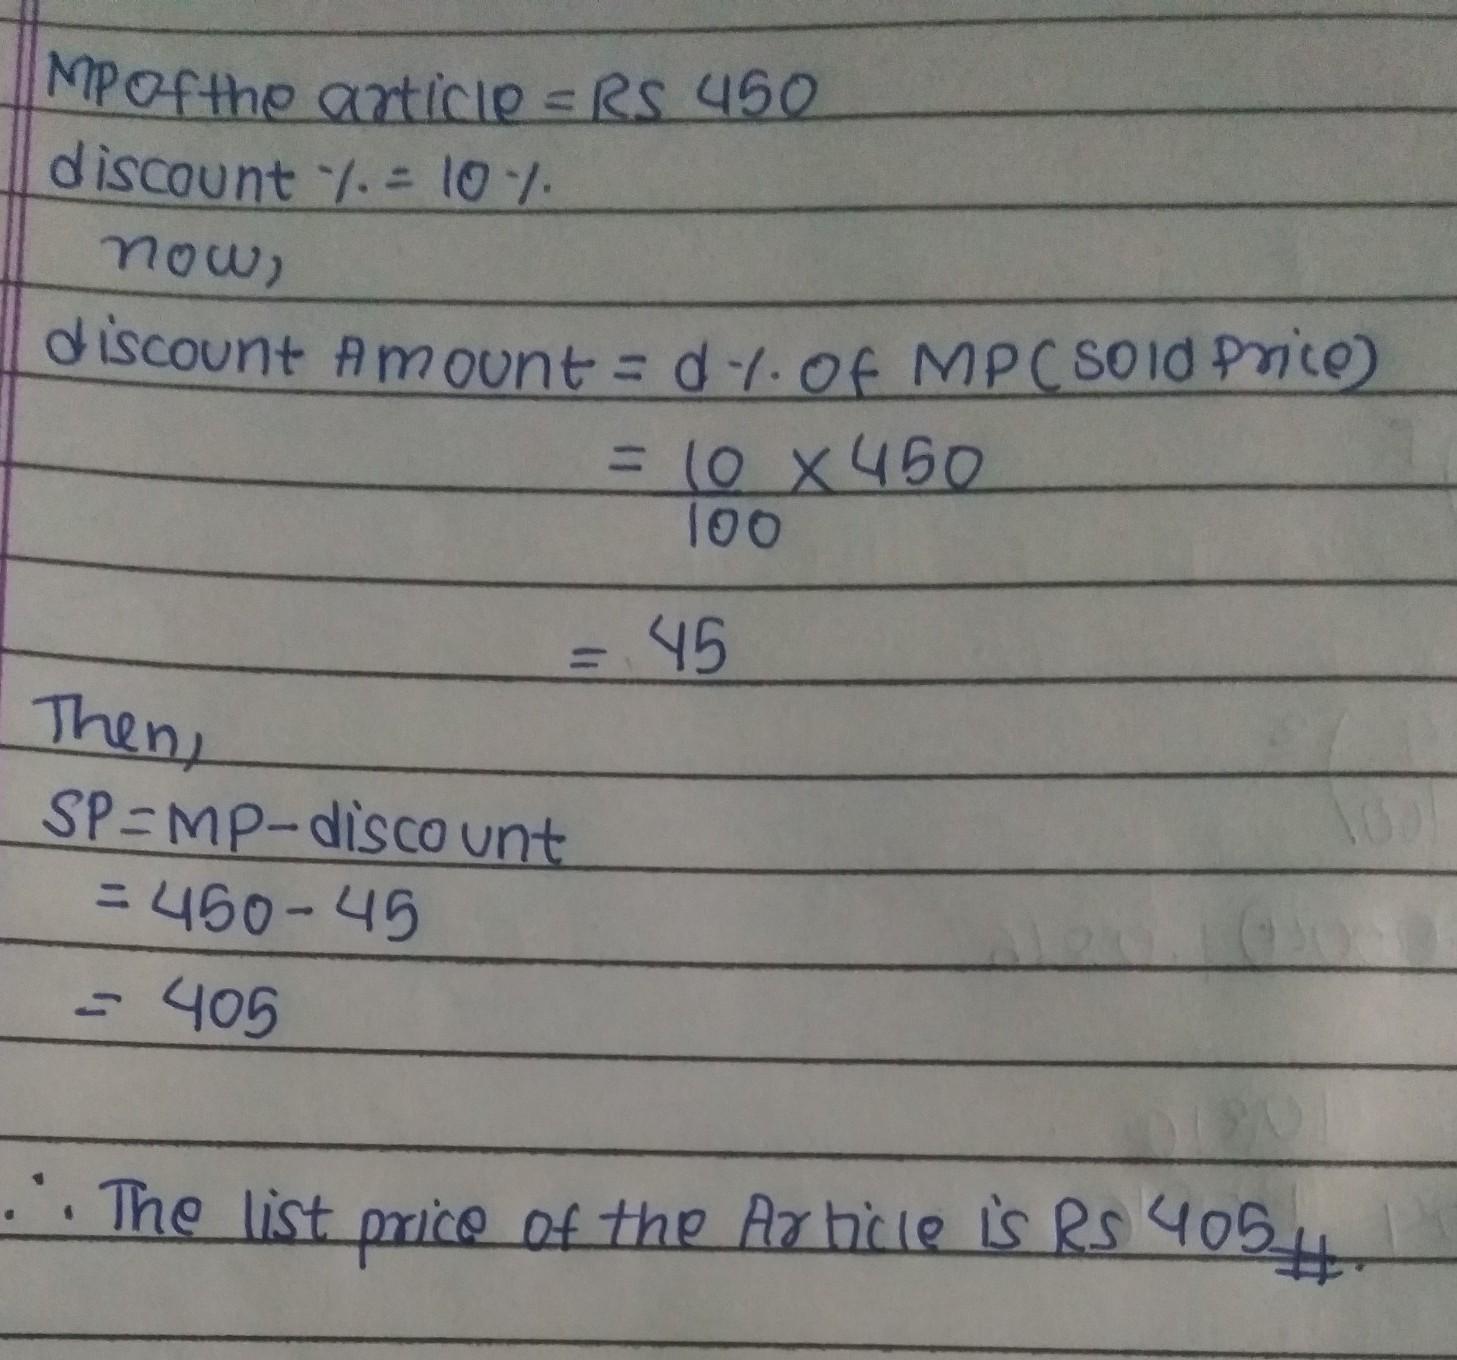 MP of the article = Rs 450
discount % = 10 %
now,
discount Amount = d % of MP (sold price)
= 10 × 450
100
= 45
Then,
SP = MP - discount
= 450 - 45
= 405
∴ The list price of the Article is Rs 405 #.